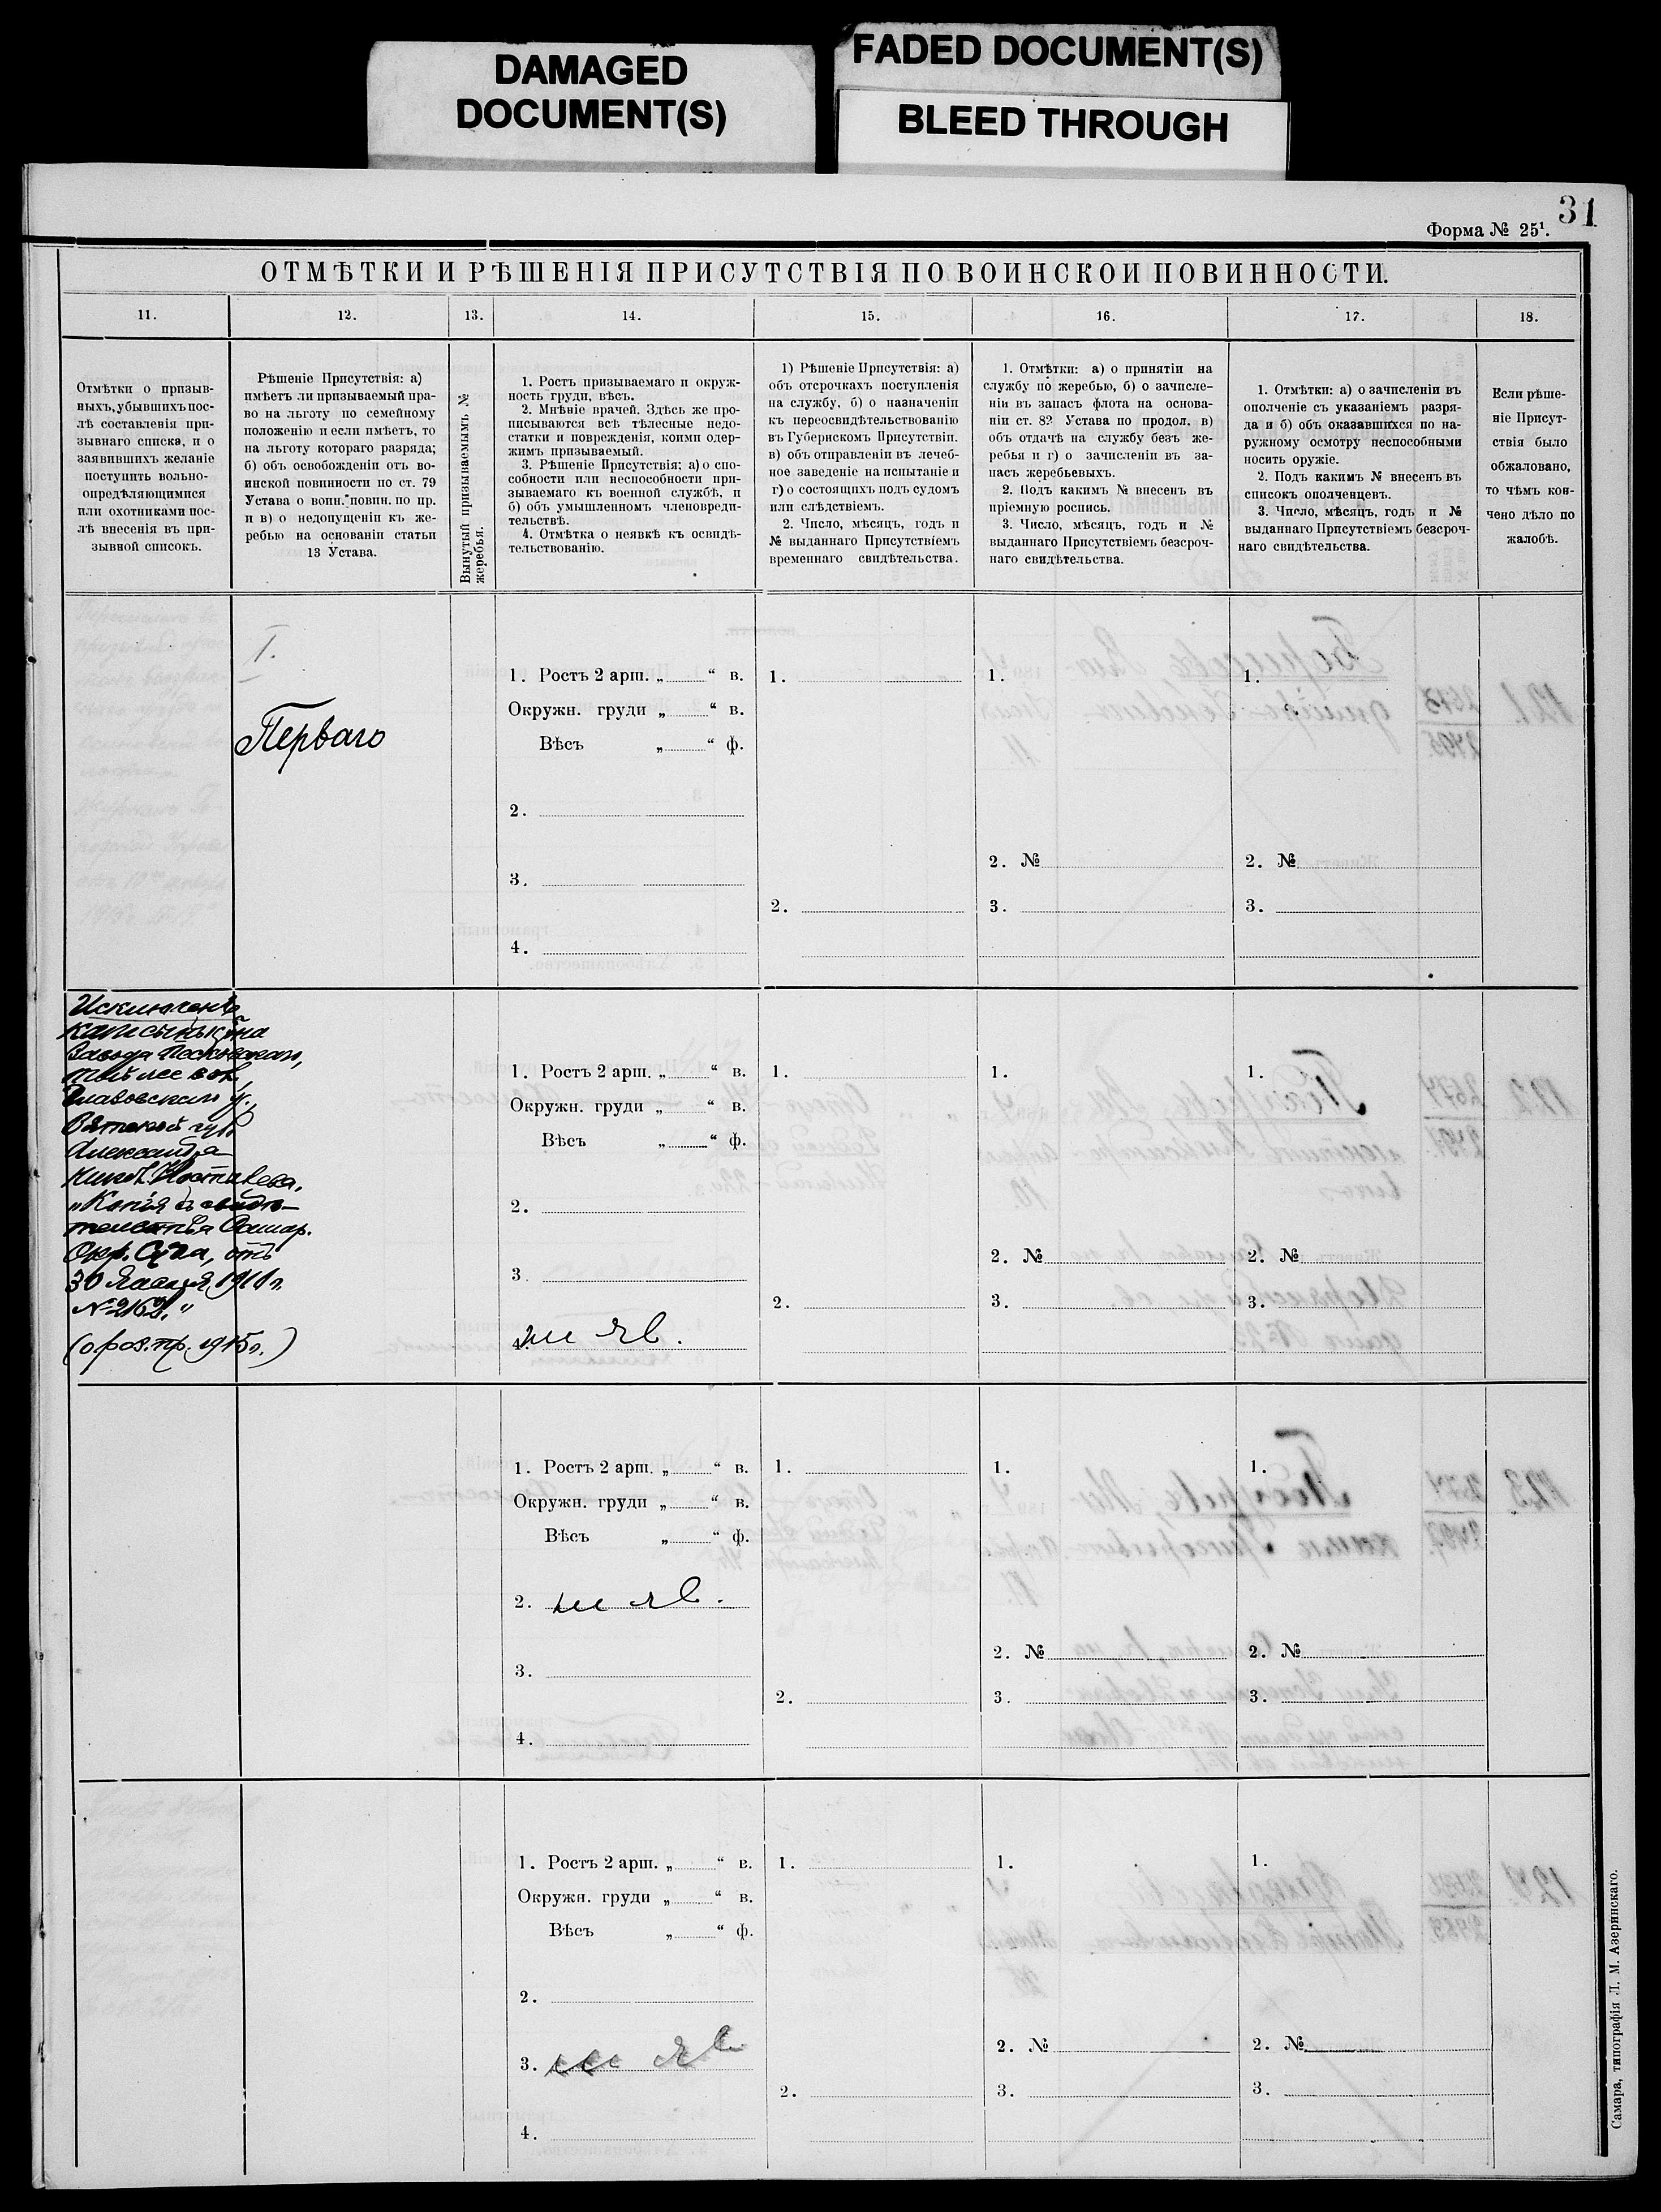 DAMAGED
DOCUMENT(S)
FADED DOCUMENT(S)
BLEED THROUGH
31
Форма № 25¹.
ОТМѢТКИ И РѢШЕНІЯ ПРИСУТСТВІЯ ПО ВОИНСКОЙ ПОВИННОСТИ.
11. 12. 13. 14. 15. 16. 17. 18.
Отмѣтки о призыв-
ныхъ, убывшихъ пос-
лѣ составленія при-
зывнаго списка, и о
заявившихъ желаніе
поступить вольно-
опредѣляющимися
или охотниками пос-
лѣ внесенія въ при-
зывной списокъ.
Рѣшеніе Присутствія: а)
имѣетъ ли призываемый пра-
во на льготу по семейному
положенію и если имѣетъ, то
на льготу котораго разряда;
б) объ освобожденіи отъ во-
инской повинности по ст. 79
Устава о воин. повин. по пр.
и в) о недопущеніи къ же-
ребью на основаніи статьи
13 Устава.
Вынутый призываемымъ №
жеребья.
1. Ростъ призываемаго и окруж-
ность груди, вѣсъ.
2. Мнѣніе врачей. Здѣсь же про-
писываются всѣ тѣлесные недо-
статки и поврежденія, коими одер-
жимъ призываемый.
3. Рѣшеніе Присутствія: а) о спо-
собности или неспособности при-
зываемаго къ военной службѣ, и
б) объ умышленномъ членовреди-
тельствѣ.
4. Отмѣтка о неявкѣ къ освидѣ-
тельствованію.
1) Рѣшеніе Присутствія: а)
объ отсрочкахъ поступленія
на службу, б) о назначеніи
къ переосвидѣтельствованію
въ Губернскомъ Присутствіи.
в) объ отправленіи въ лечеб-
ное заведеніе на испытаніе и
г) о состоящихъ подъ судомъ
или слѣдствіемъ.
2. Число, мѣсяцъ, годъ и
№ выданнаго Присутствіемъ
временнаго свидѣтельства.
1. Отмѣтки: а) о принятіи на
службу по жеребью, б) о зачисле-
ніи въ запасъ флота на основа-
ніи ст. 82 Устава по продол. в)
объ отдачѣ на службу безъ же-
ребья и г) о зачисленіи въ за-
пасъ жеребьевыхъ.
2. Подъ какимъ № внесенъ въ
пріемную роспись.
3. Число, мѣсяцъ, годъ и №
выданнаго Присутствіемъ безсроч-
наго свидѣтельства.
1. Отмѣтки: а) о зачисленіи въ
ополченіе съ указаніемъ разря-
да и б) объ оказавшихся по на-
ружному осмотру неспособными
носить оружіе.
2. Подъ какимъ № внесенъ въ
списокъ ополченцевъ.
3. Число, мѣсяцъ, годъ и №
выданнаго Присутствіемъ безсроч-
наго свидѣтельства.
Если рѣше-
ніе Присут-
ствія было
обжаловано,
то чѣмъ кон-
чено дѣло по
жалобѣ.
I.
Перваго
1. Ростъ 2 арш. „ “ в.
Окружн. груди „ “ в.
Вѣсъ „ “ ф.
2.
3.
4.
1.
2.
1.
2. №
3.
1.
2. №
3.
Исключенъ
Завода Песковскаго,
Глазовскаго у.,
Вятской губ
Александра
„Копія съ свидѣ-
тельства Самар.
Окр. Суда, отъ
30 Января 1911 г.
№ 2162."
1. Ростъ 2 арш. „ “ в.
Окружн. груди „ “ в.
Вѣсъ „ “ ф.
2.
3.
4. не яв.
1.
2.
1.
2. №
3.
1.
2. №
3.
1. Ростъ 2 арш. „ “ в.
Окружн. груди „ “ в.
Вѣсъ „ “ ф.
2. не яв.
3.
4.
1.
2.
1.
2. №
3.
1.
2. №
3.
1. Ростъ 2 арш. „ “ в.
Окружн. груди „ “ в.
Вѣсъ „ “ ф.
2.
3. не яв
4.
1.
2.
1.
2. №
3.
1.
2. №
3.
Самара, типографія Л. М. Азеринскаго.